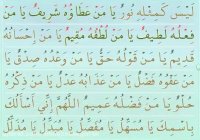 لَيْسَ كَمِثْلِهِ نُورٌ يَا مَنْ عَطَاؤُهُ شَرِيفٌ يَا مَنْ
فِعْلُهُ لَطِيفٌ يَا مَنْ لُطْفُهُ مُقِيمٌ يَا مَنْ اِحْسَانُهُ
قَدِيمٌ يَا مَنْ قَوْلُهُ حَقٌّ يَا مَنْ وَعْدُهُ صِدْقٌ يَا
مَنْ عَفْوُهُ فَضْلٌ يَا مَنْ عَذَابُهُ عَدْلٌ يَا مَنْ ذِكْرُهُ
حُلْوٌ يَا مَنْ فَضْلُهُ عَمِيمٌ اَللَّهُمَّ اِنِّي أَسْأَلُكَ
بِاسْمِكَ يَا مُسَهِّلُ يَا مُفَصِّلُ يَا مُبَدِّلُ يَا مُذَلِّلُ